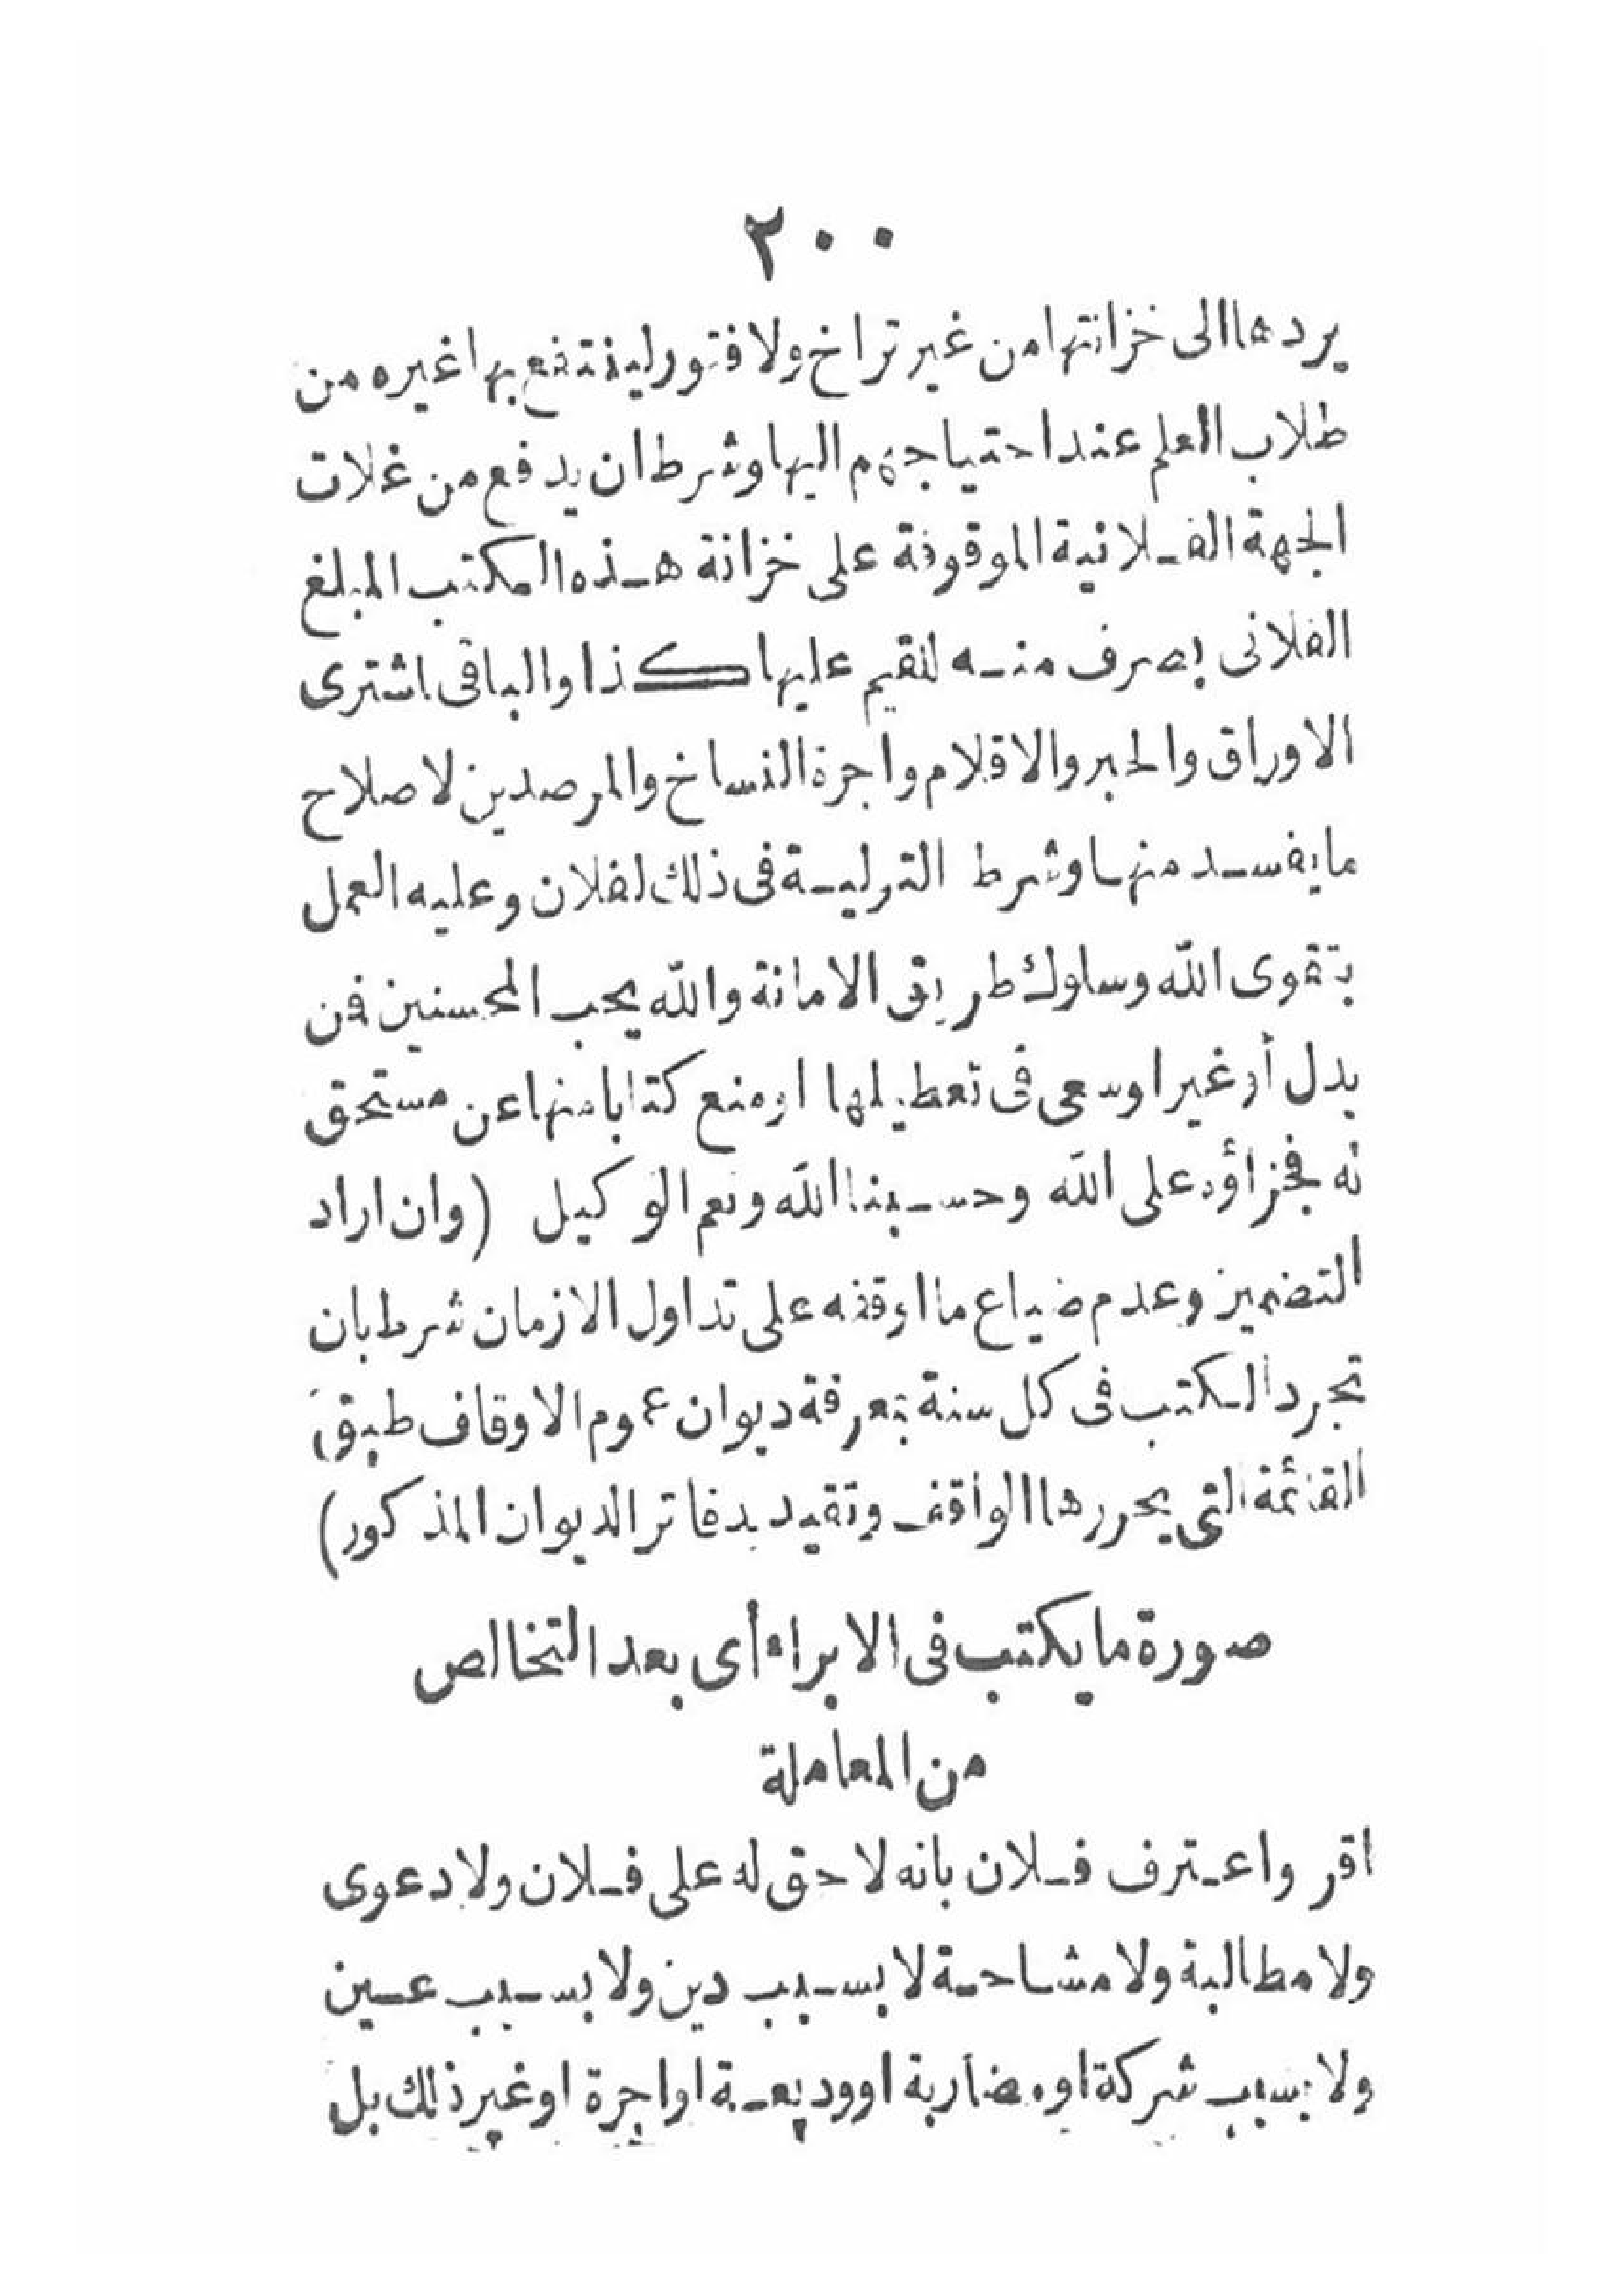 ٢٠٠
يردها الى خزانتها من غير تراخ ولا فتور لينتفع بها غيره من
طلاب العلم عند احتياجهم اليها وشرط ان يدفع من غلات
الجهة الفلانية الموقوفة على خزانة هذه المكتب المبلغ
الفلانى يصرف منه للقيم عليها كذا والباقى اشترى
الاوراق والحبر والاقلام واجرة النساخ والمرصدين لاصلاح
ما يفسد منها وشرط التولية فى ذلك لفلان وعليه العمل
بتقوى الله وسلوك طريق الامانة والله يحب المحسنين فمن
بدل أو غير او سعى فى تعطيلها او منع كتابا منها عن مستحق
له فجزاؤه على الله وحسبنا الله ونعم الوكيل (وان اراد
التضمين وعدم ضياع ما اوقفه على تداول الازمان شرط بان
تجرد الكتب فى كل سنة بمعرفة ديوان عموم الاوقاف طبق
القائمة التى يحررها الواقف وتقيد بدفاتر الديوان المذكور)
صورة ما يكتب فى الابراء أى بعد التخالص
من المعاملة
اقر واعترف فلان بانه لا حق له على فلان ولا دعوى
ولا مطالبة ولا مشاحة لا بسبب دين ولا بسبب عين
ولا بسبب شركة او مضاربة او وديعة او اجرة او غير ذلك بل